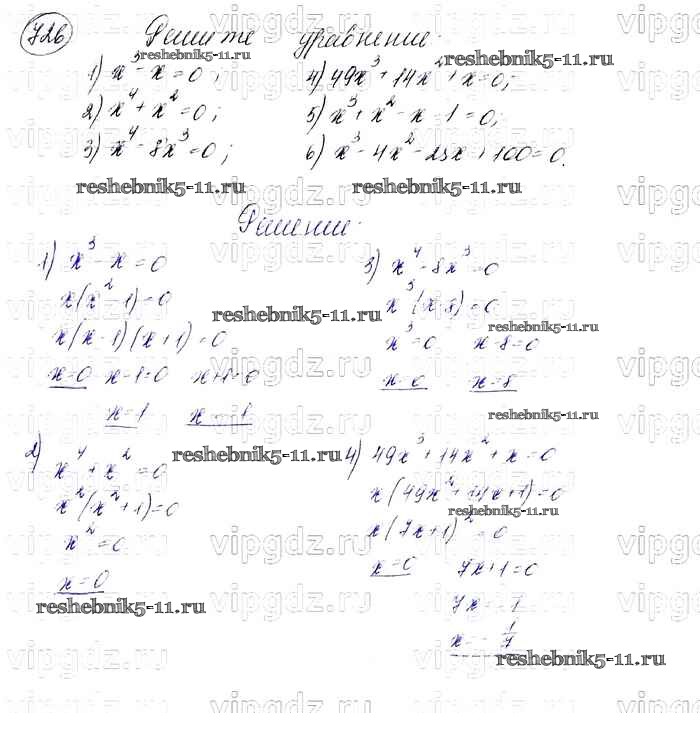 726 Решите уравнение:
1) x³ - x = 0;
2) x⁴ + x² = 0;
3) x⁴ - 8x³ = 0;
4) 49x³ + 14x² + x = 0;
5) x³ + x² - x - 1 = 0;
6) x³ - 4x² - 25x + 100 = 0.
Решение:
1) x³ - x = 0
x(x² - 1) = 0
x(x - 1)(x + 1) = 0
x = 0 x - 1 = 0 x + 1 = 0
x = 1 x = -1
2) x⁴ + x² = 0
x²(x² + 1) = 0
x² = 0
x = 0
3) x⁴ - 8x³ = 0
x³(x - 8) = 0
x³ = 0 x - 8 = 0
x = 0 x = 8
4) 49x³ + 14x² + x = 0
x(49x² + 14x + 1) = 0
x(7x + 1)² = 0
x = 0 7x + 1 = 0
7x = -1
x = -1/7
reshebnik5-11.ru
vipgdz.ru